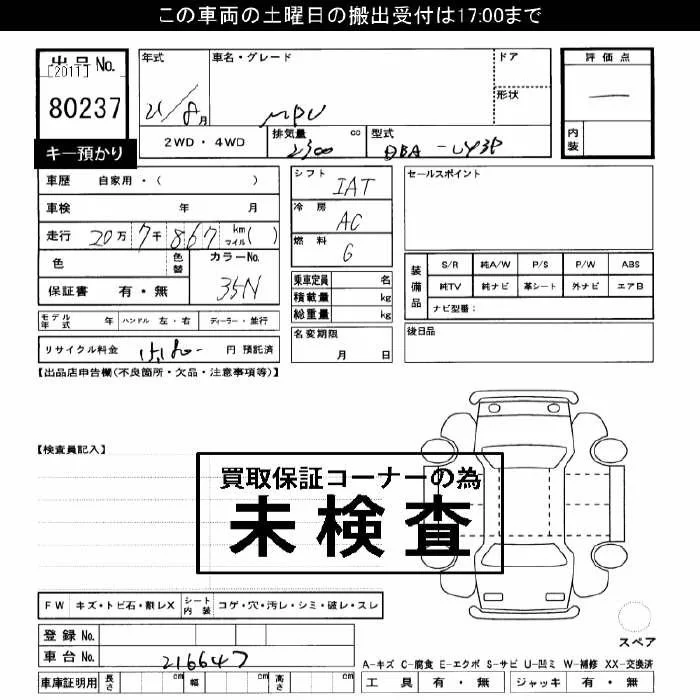 この車両の土曜日の搬出受付は17:00まで
出品No.
[2011]
80237
キー預かり
年式 車名・グレード ドア
21/8月 MPV 形状
2WD・4WD 排気量 cc 2300 型式 DBA-LY3P
評価点
内装
車歴 自家用・( )
車検 年 月
走行 20万7千867 km マイル( )
色 色替 カラーNo. 35N
保証書 有・無
モデル年式 年 ハンドル 左・右 ディーラー・並行
リサイクル料金 円 預託済
シフト IAT
冷房 AC
燃料 G
乗車定員 名
積載量 kg
総重量 kg
名変期限
月 日
セールスポイント
装備品 S/R 純A/W P/S P/W ABS
純TV 純ナビ 革シート 外ナビ エアB
ナビ型番:
後日品
【出品店申告欄(不良箇所・欠品・注意事項等)】
【検査員記入】
買取保証コーナーの為
未検査
FW キズ・トビ石・割レX シート内装 コゲ・穴・汚レ・シミ・破レ・スレ
登録No.
車台No. 216647
車庫証明用 長さ cm 幅 cm 高さ cm
スペア
A-キズ C-腐食 E-エクボ S-サビ U-凹ミ W-補修 XX-交換済
工具 有・無 ジャッキ 有・無